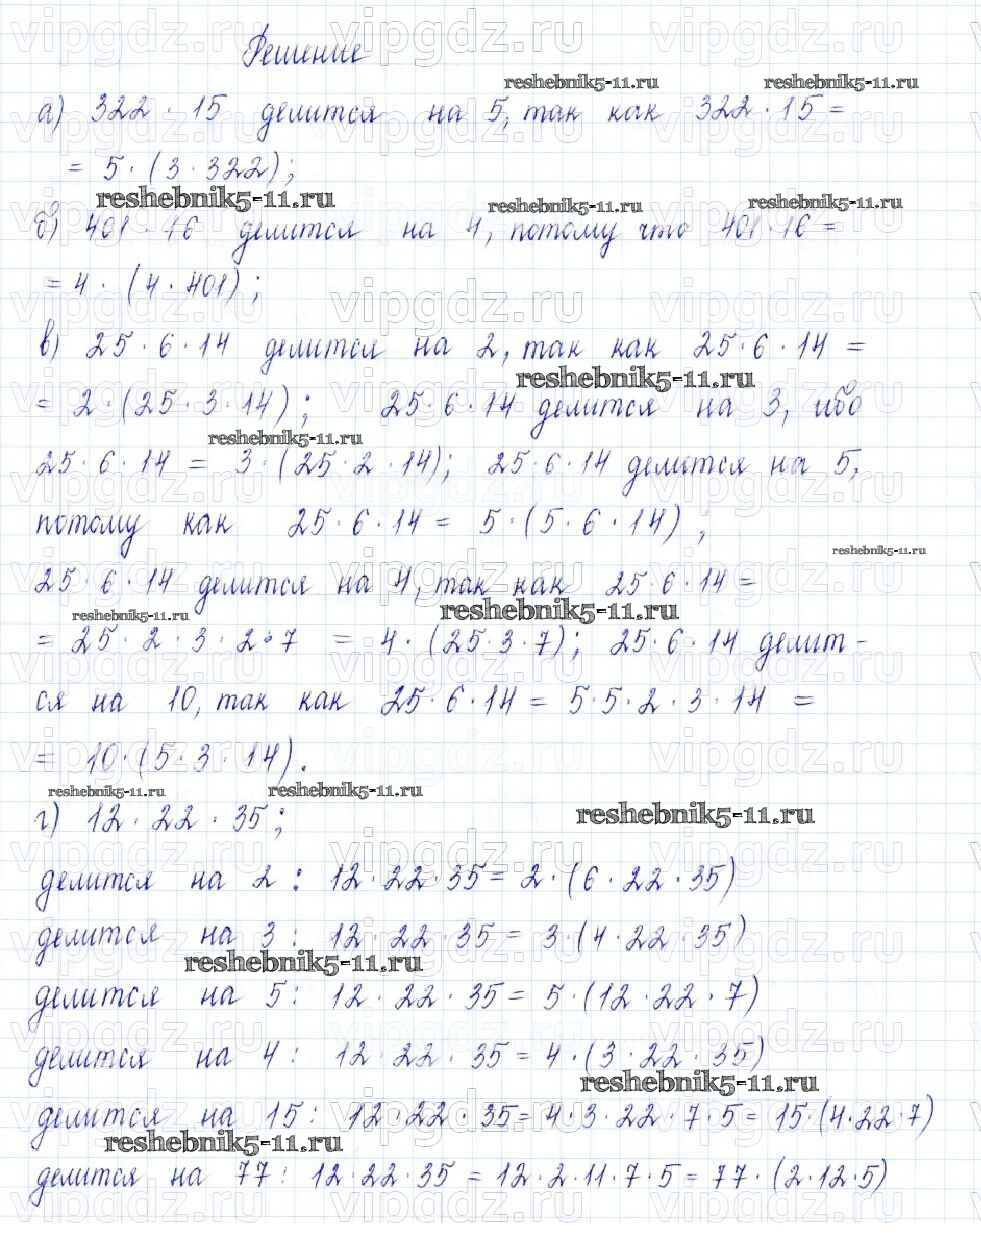 Решение
а) 322 · 15 делится на 5, так как 322 · 15 =
= 5 · (3 · 322);
б) 401 · 16 делится на 4, потому что 401 · 16 =
= 4 · (4 · 401);
в) 25 · 6 · 14 делится на 2, так как 25 · 6 · 14 =
= 2 · (25 · 3 · 14); 25 · 6 · 14 делится на 3, ибо
25 · 6 · 14 = 3 · (25 · 2 · 14); 25 · 6 · 14 делится на 5,
потому как 25 · 6 · 14 = 5 · (5 · 6 · 14);
25 · 6 · 14 делится на 4, так как 25 · 6 · 14 =
= 25 · 2 · 3 · 2 · 7 = 4 · (25 · 3 · 7); 25 · 6 · 14 делит-
ся на 10, так как 25 · 6 · 14 = 5 · 5 · 2 · 3 · 14 =
= 10 · (5 · 3 · 14).
г) 12 · 22 · 35;
делится на 2: 12 · 22 · 35 = 2 · (6 · 22 · 35)
делится на 3: 12 · 22 · 35 = 3 · (4 · 22 · 35)
делится на 5: 12 · 22 · 35 = 5 · (12 · 22 · 7)
делится на 4: 12 · 22 · 35 = 4 · (3 · 22 · 35)
делится на 15: 12 · 22 · 35 = 4 · 3 · 22 · 7 · 5 = 15 · (4 · 22 · 7)
делится на 77: 12 · 22 · 35 = 12 · 2 · 11 · 7 · 5 = 77 · (2 · 12 · 5)
vipgdz.ru
reshebnik5-11.ru